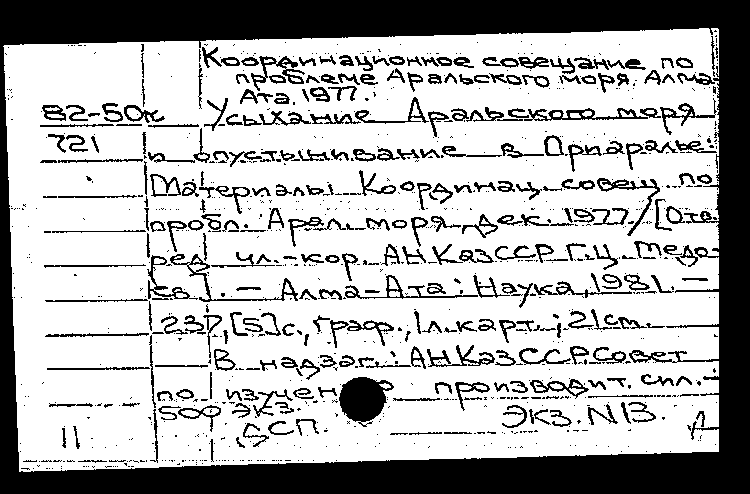 Координационное совещание по
проблеме Аральского моря. Алма-
Ата. 1977.
82-50к Усыхание Аральского моря
721 и опустынивание в Приаралье:
Материалы Координац. совещ. по
пробл. Арал. моря, дек. 1977/[Отв.
ред. чл.-кор. АН КазССР Г.Ц. Медо-
ев]. — Алма-Ата: Наука, 1981. —
237, [5]с., граф., 1л.карт.; 21см.
В надзаг.: АН КазССР. Совет
по изучен о производит. сил.-
500 экз. Экз. N13.
11 ДСП. А